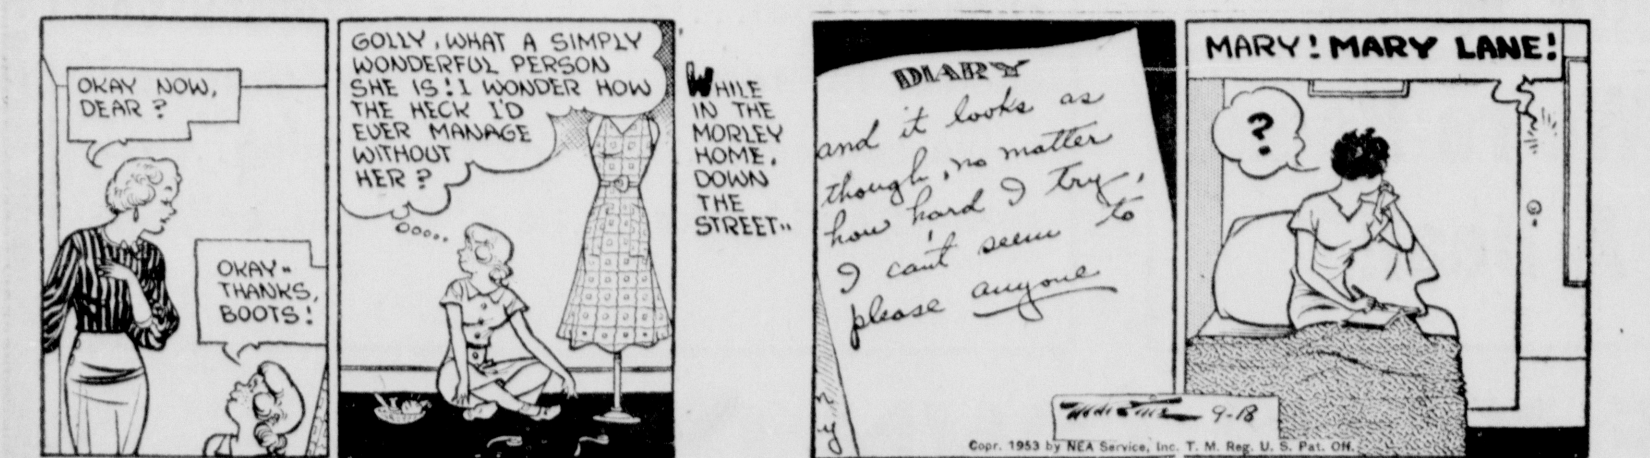 OKAY NOW,
DEAR?
OKAY--
THANKS,
BOOTS!
GOLLY, WHAT A SIMPLY
WONDERFUL PERSON
SHE IS! I WONDER HOW
THE HECK I'D
EVER MANAGE
WITHOUT
HER?
WHILE
IN THE
MORLEY
HOME,
DOWN
THE
STREET--
DIARY
and it looks as
though, no matter
how hard I try,
I can't seem to
please anyone
9-18
Copr. 1953 by NEA Service, Inc. T. M. Reg. U. S. Pat. Off.
?
MARY! MARY LANE!